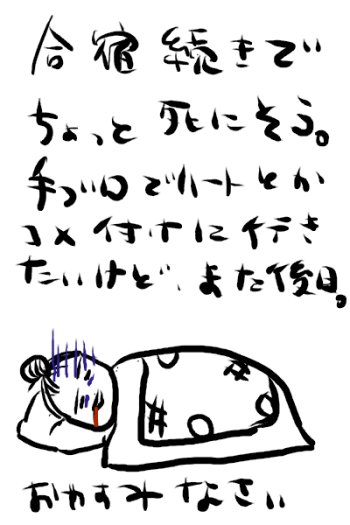 合宿続きで
ちょっと死にそう。
手ブロでハートとか
コメ付けに行き
たいけど、また後日。
おやすみなさい